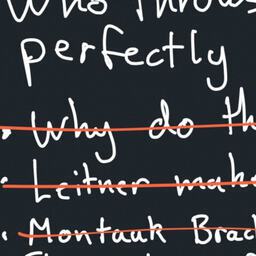 Who throws
perfectly
Why do th
Leitner make
Montauk Brad